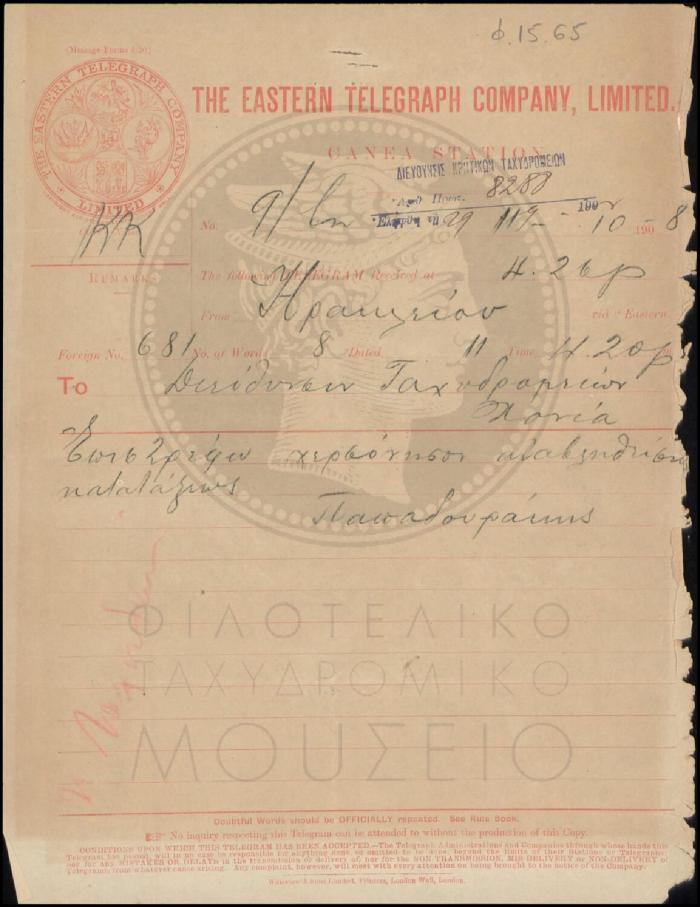 Φ.15.65
(Message Forms 4/20)
THE EASTERN TELEGRAPH COMPANY LIMITED
THE EASTERN TELEGRAPH COMPANY, LIMITED.
CANEA STATION
ΔΙΕΥΘΥΝΣΙΣ ΚΡΗΤΙΚΩΝ ΤΑΧΥΔΡΟΜΕΙΩΝ
8288
No. 29 11 10 - 1908
REMARKS
The following TELEGRAM Received at 4.26
From Ηρακλείου via Eastern
Foreign No. 681 No. of Words 8 Dated 11 Time 4.20
To Διεύθυνσιν Ταχυδρομείων
Χανιά
Επιστρέφω χερσόνησον
κατατάξεως
Παπαδουράκης
ΦΙΛΟΤΕΛΙΚΟ
ΤΑΧΥΔΡΟΜΙΚΟ
ΜΟΥΣΕΙΟ
Doubtful Words should be OFFICIALLY repeated. See Rule Book.
No inquiry respecting this Telegram can be attended to without the production of this Copy.
CONDITIONS UPON WHICH THIS TELEGRAM HAS BEEN ACCEPTED.—The Telegraph Administrations and Companies through whose hands this
Telegram has passed, will in no case be responsible for anything done, or omitted to be done, beyond the limits of their Stations or Telegraphs,
nor for any MISTAKES OR DELAYS in the transmission or delivery of, nor for the NON TRANSMISSION, MIS-DELIVERY or NON-DELIVERY of
Telegrams from whatever cause arising. Any complaint, however, will meet with every attention on being brought to the notice of the Company.
Limited, Printers, London Wall, London.